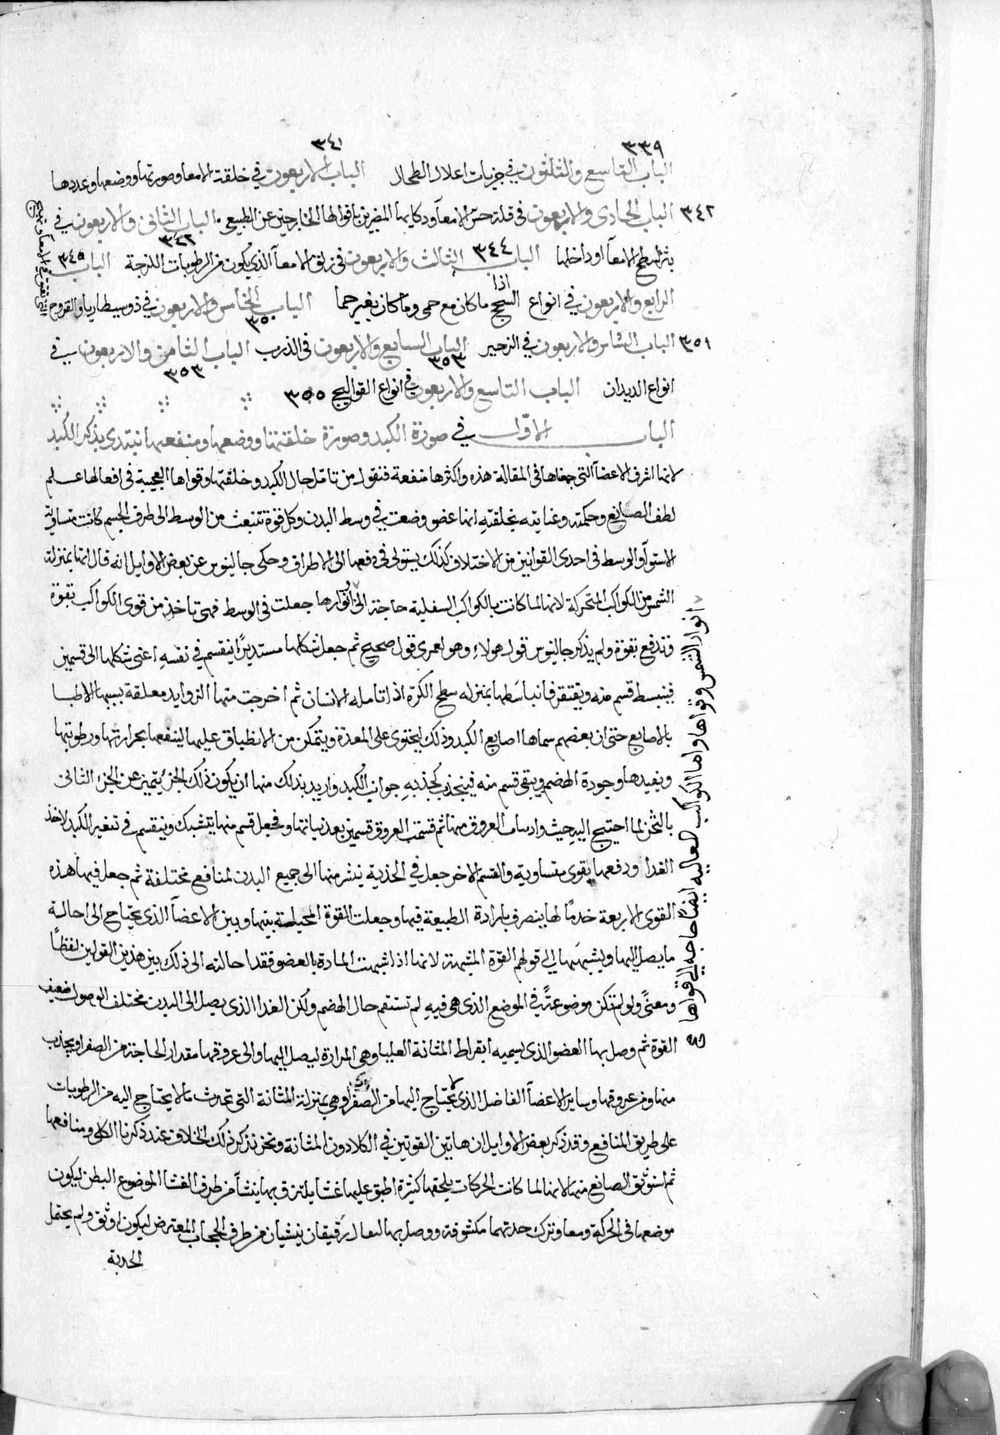 ٣٣٩ ٣٤١
الباب التاسع والثلثون في جزيات اعلال الطحال الباب الاربعون في خلقة الامعا وصورتها ووضعها وعددها
٣٤٢ الباب الحادى والاربعون فى قلة حس الامعا وذكايها المضرين بافعالها الخارجين عن الطبيعى الباب الثانى والاربعون في
٣٤٣ ٣٤٤ ٣٤٥
بثر سطح الامعا او داخلها الباب الثالث والاربعون فى زلق الامعا الذى يكون من الرطوبات اللزجة الباب
الرابع والاربعون في انواع السحج اذا ما كان مع حمى وما كان بغير حما الباب الخامس والاربعون في ذوسنطاريا والقروح
٣٥٠
٣٥١ الباب السادس والاربعون في الزحير الباب السابع والاربعون فى الذرب الباب الثامن والاربعون في
٣٥٣ ٣٥٣
انواع الديدان الباب التاسع والاربعون في انواع القوالنج ٣٥٥
الباب الاول في صورة الكبد وصورة خلقتها ووضعها ومنفعتها نبتدى بذكر الكبد
لانها اشرف الاعضا التى جمعناها فى المقالة هذه واكثرها منفعة فنقول من تامل حال الكبد وخلقتها وقواها العجيبة فى افعالها علم
لطف الصانع وحكمته وعنايته بخلقته انها عضو وضعت في وسط البدن وكل قوة تنبعث من الوسط الى طرف الجسم كانت متساوية
الاستوآ والوسط فى احدى القوانين من الاختلاف كذلك يستولى فى دفعها الى الاطراف وحكى جالينوس عن بعض الاوايل انه قال انها بمنزلة
الشمس من الكواكب المتحركة لانها لما كانت بالكواكب السفلية حاجة الى انوارها جعلت فى الوسط فهى تاخذ من قوى الكواكب بقوة
وتدفع بقوة ولم يذكر جالينوس قول هولاء وهو لعمرى قول صحيح ثم جعل شكلها مستديرًا ينقسم في نفسه اعنى شكلها الى قسمين
فينبسط قسم منه ويتقعر فانبساطها بمنزلة سطح الكرة اذا تامله الانسان ثم اخرجت منها الزوايد معلقة يسميها الاطبا
بالاصابع حتى ان بعضهم سماها اصابع الكبد وذلك ليحتوى على المعدة ويتمكن من الانطباق عليها لينفعها بحرارتها ورطوبتها
ويفيدها وجودة الهضم ويبقى قسم منه فينجذب جوانب الكبد واريد بذلك منها ان يكون ذلك الجز يتميز عن الجز الثانى
الغذا ودفعها بقوى متساوية والقسم الاخر جعل في الحدبة ينشر منها الى جميع البدن لمنافع مختلفة ثم جعل فيها هذه
القوى الاربعة خدمًا لها بتصرف بارادة الطبيعة فيها وجعلت القوة المحيلة بينها وبين الاعضآ الذى يحتاج الى احالة
ما يصل اليها ويشبهها الى قولهم القوة المشبهة لانها اذا شبهت المادة بالعضو فقد احالته الى ذلك بين هذين القولين لفظًا
ومعنىً ولو لم تكن موضوعةً في الموضع الذى هى فيه لم تستقم حال الهضم ولكن الغذا الذى يصل الى البدن مختلف الوصول ضعيف
القوة ثم وصل بها العضو الذى يسميه ابقراط المثانة العليا وهى المرارة ليصل اليها والى عروقها مقدار الحاجة من الصفرا ويجذب
منها ومن عروقها وساير الاعضآ الفاضل الذى لا يحتاج اليها من الصفرا وهى بمنزلة المثانة التى تجذب ما لا يحتاج اليه من الرطوبات
على طريق المنافع وقد ذكر بعض الاوايل ان هاتين القوتين في الكلا دون المثانة ونحن نذكر ذلك الخلاف عند ذكرنا الكلى ومنافعها
ثم استوثق الصانع منها لانها لما كانت الحركات يلحقها كثيرة اطبق عليها غشا يلتزق بها ينشأ من طرف الغشا الموضوع البطن ليكون
موضعها فى الحركة ومعا وترك حدتها مكشوفة ووصل بها رقيقان ينشيان من طرف الحجاب المعترض ليكون اوثق ولم يحتمل
الحدبة
انوار الشمس وقواها واما الكواكب العالية ايضا حاجة الى قواها صح